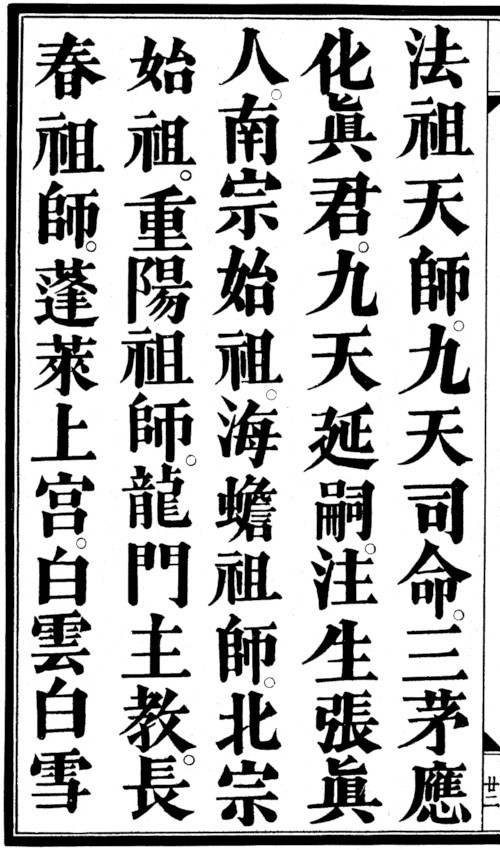 法祖天師。九天司命。三茅應
化眞君。九天延嗣。注生張眞
人。南宗始祖。海蟾祖師。北宗
始祖。重陽祖師。龍門主教。長
春祖師。蓬萊上宮。白雲白雪
廿二